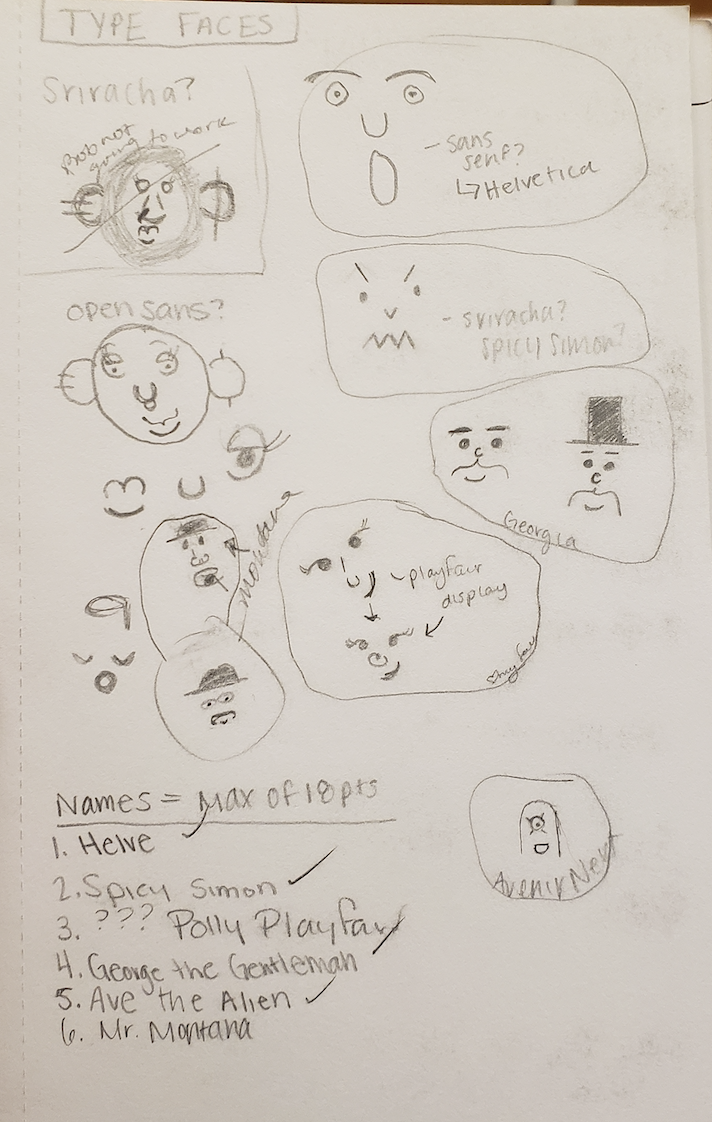 TYPE FACES
Sriracha?
Prob not
going to work
- sans
serif?
↳ Helvetica
open sans?
- sriracha?
spicy simon?
Georgia
Montana
- playfair
display
Names = Max of 18pts
1. Helve
2. Spicy Simon
3. ??? Polly Playfair
4. George the Gentleman
5. Ave the Alien
6. Mr. Montana
Avenir Next